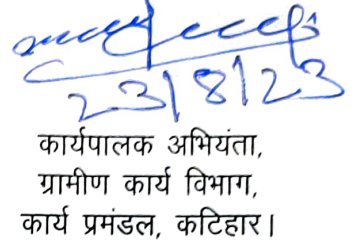 23/8/23
कार्यपालक अभियंता,
ग्रामीण कार्य विभाग,
कार्य प्रमंडल, कटिहार।